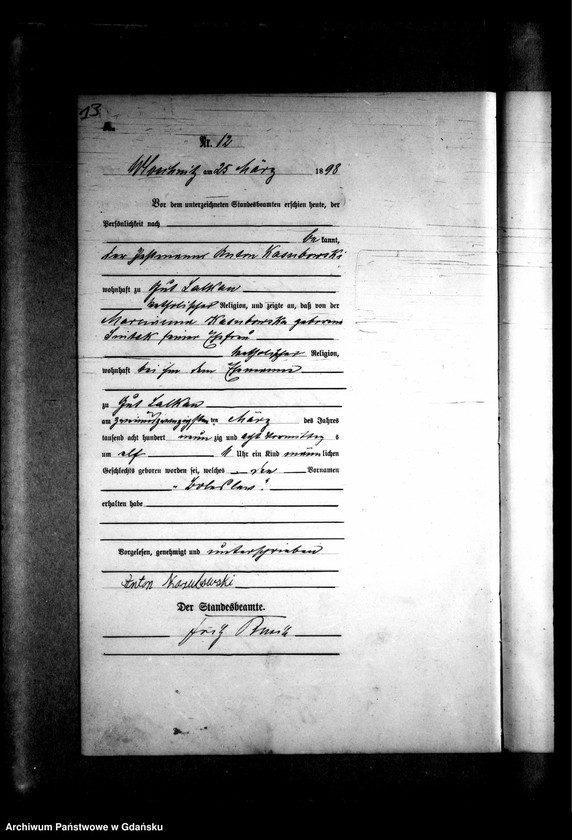 13
A.
Nr. 12
am 25 März 1898
Vor dem unterzeichneten Standesbeamten erschien heute, der
Persönlichkeit nach
be kannt,
der Anton Kasubowski
wohnhaft zu Gut Lalkau
katholischer Religion, und zeigte an, daß von der
Kasubowska geborene
seiner Ehefrau
katholischer Religion,
wohnhaft bei ihm dem Ehemanne
zu Gut Lalkau
am zweiundzwanzigsten ten März des Jahres
tausend acht hundert neun zig und acht Vormittag s
um elf Uhr ein Kind männ lichen
Geschlechts geboren worden sei, welches den Vornamen
„Boleslaw“.
erhalten habe
Vorgelesen, genehmigt und unterschrieben
Anton Kasubowski
Der Standesbeamte.
Fritz
Archiwum Państwowe w Gdańsku